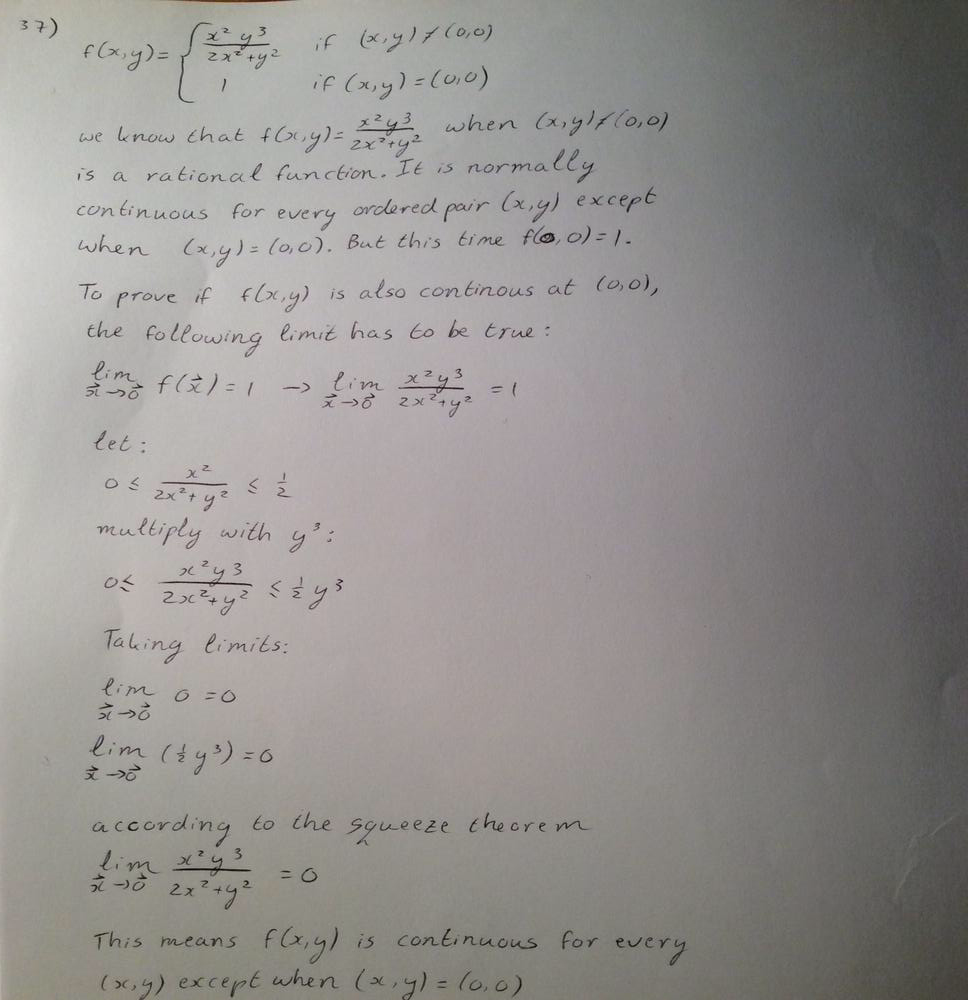 37)
f(x,y) = { x² y³ / 2x² + y² if (x,y) ≠ (0,0)
1 if (x,y) = (0,0)
we know that f(x,y) = x²y³ / 2x²+y² when (x,y) ≠ (0,0)
is a rational function. It is normally
continuous for every ordered pair (x,y) except
when (x,y) = (0,0). But this time f(0,0) = 1.
To prove if f(x,y) is also continous at (0,0),
the following limit has to be true:
lim x⃗→0⃗ f(x⃗) = 1 → lim x⃗→0⃗ x²y³ / 2x²+y² = 1
let:
0 ≤ x² / 2x²+y² ≤ 1/2
multiply with y³:
0 ≤ x²y³ / 2x²+y² ≤ 1/2 y³
Taking limits:
lim x⃗→0⃗ 0 = 0
lim x⃗→0⃗ (1/2 y³) = 0
according to the squeeze theorem
lim x⃗→0⃗ x²y³ / 2x²+y² = 0
This means f(x,y) is continuous for every
(x,y) except when (x,y) = (0,0)